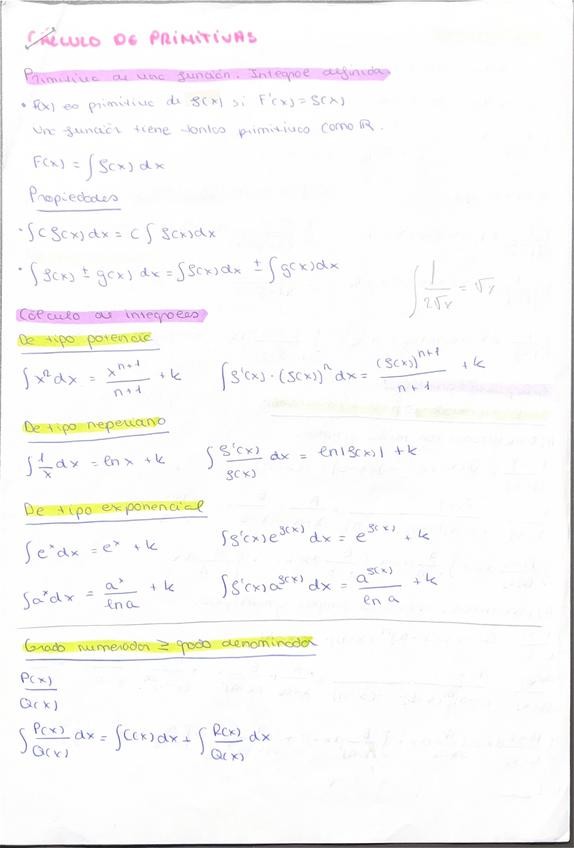 CÁLCULO DE PRIMITIVAS
Primitiva de una función. Integral definida
• F(x) es primitiva de f(x) si F'(x) = f(x)
Una función tiene tantas primitivas como ℝ.
F(x) = ∫ f(x) dx
Propiedades
• ∫ C f(x) dx = C ∫ f(x) dx
• ∫ f(x) ± g(x) dx = ∫ f(x) dx ± ∫ g(x) dx
∫ 1/(2√x) = √x
Cálculo de integrales
De tipo potencia
∫ xⁿ dx = xⁿ⁺¹/(n+1) + k    ∫ f'(x) · (f(x))ⁿ dx = (f(x))ⁿ⁺¹/(n+1) + k
De tipo neperiano
∫ 1/x dx = ln x + k    ∫ f'(x)/f(x) dx = ln|f(x)| + k
De tipo exponencial
∫ eˣ dx = eˣ + k    ∫ f'(x) e^f(x) dx = e^f(x) + k
∫ aˣ dx = aˣ/ln a + k    ∫ f'(x) a^f(x) dx = a^f(x)/ln a + k
Grado numerador ≥ grado denominador
P(x)/Q(x)
∫ P(x)/Q(x) dx = ∫ C(x) dx + ∫ R(x)/Q(x) dx